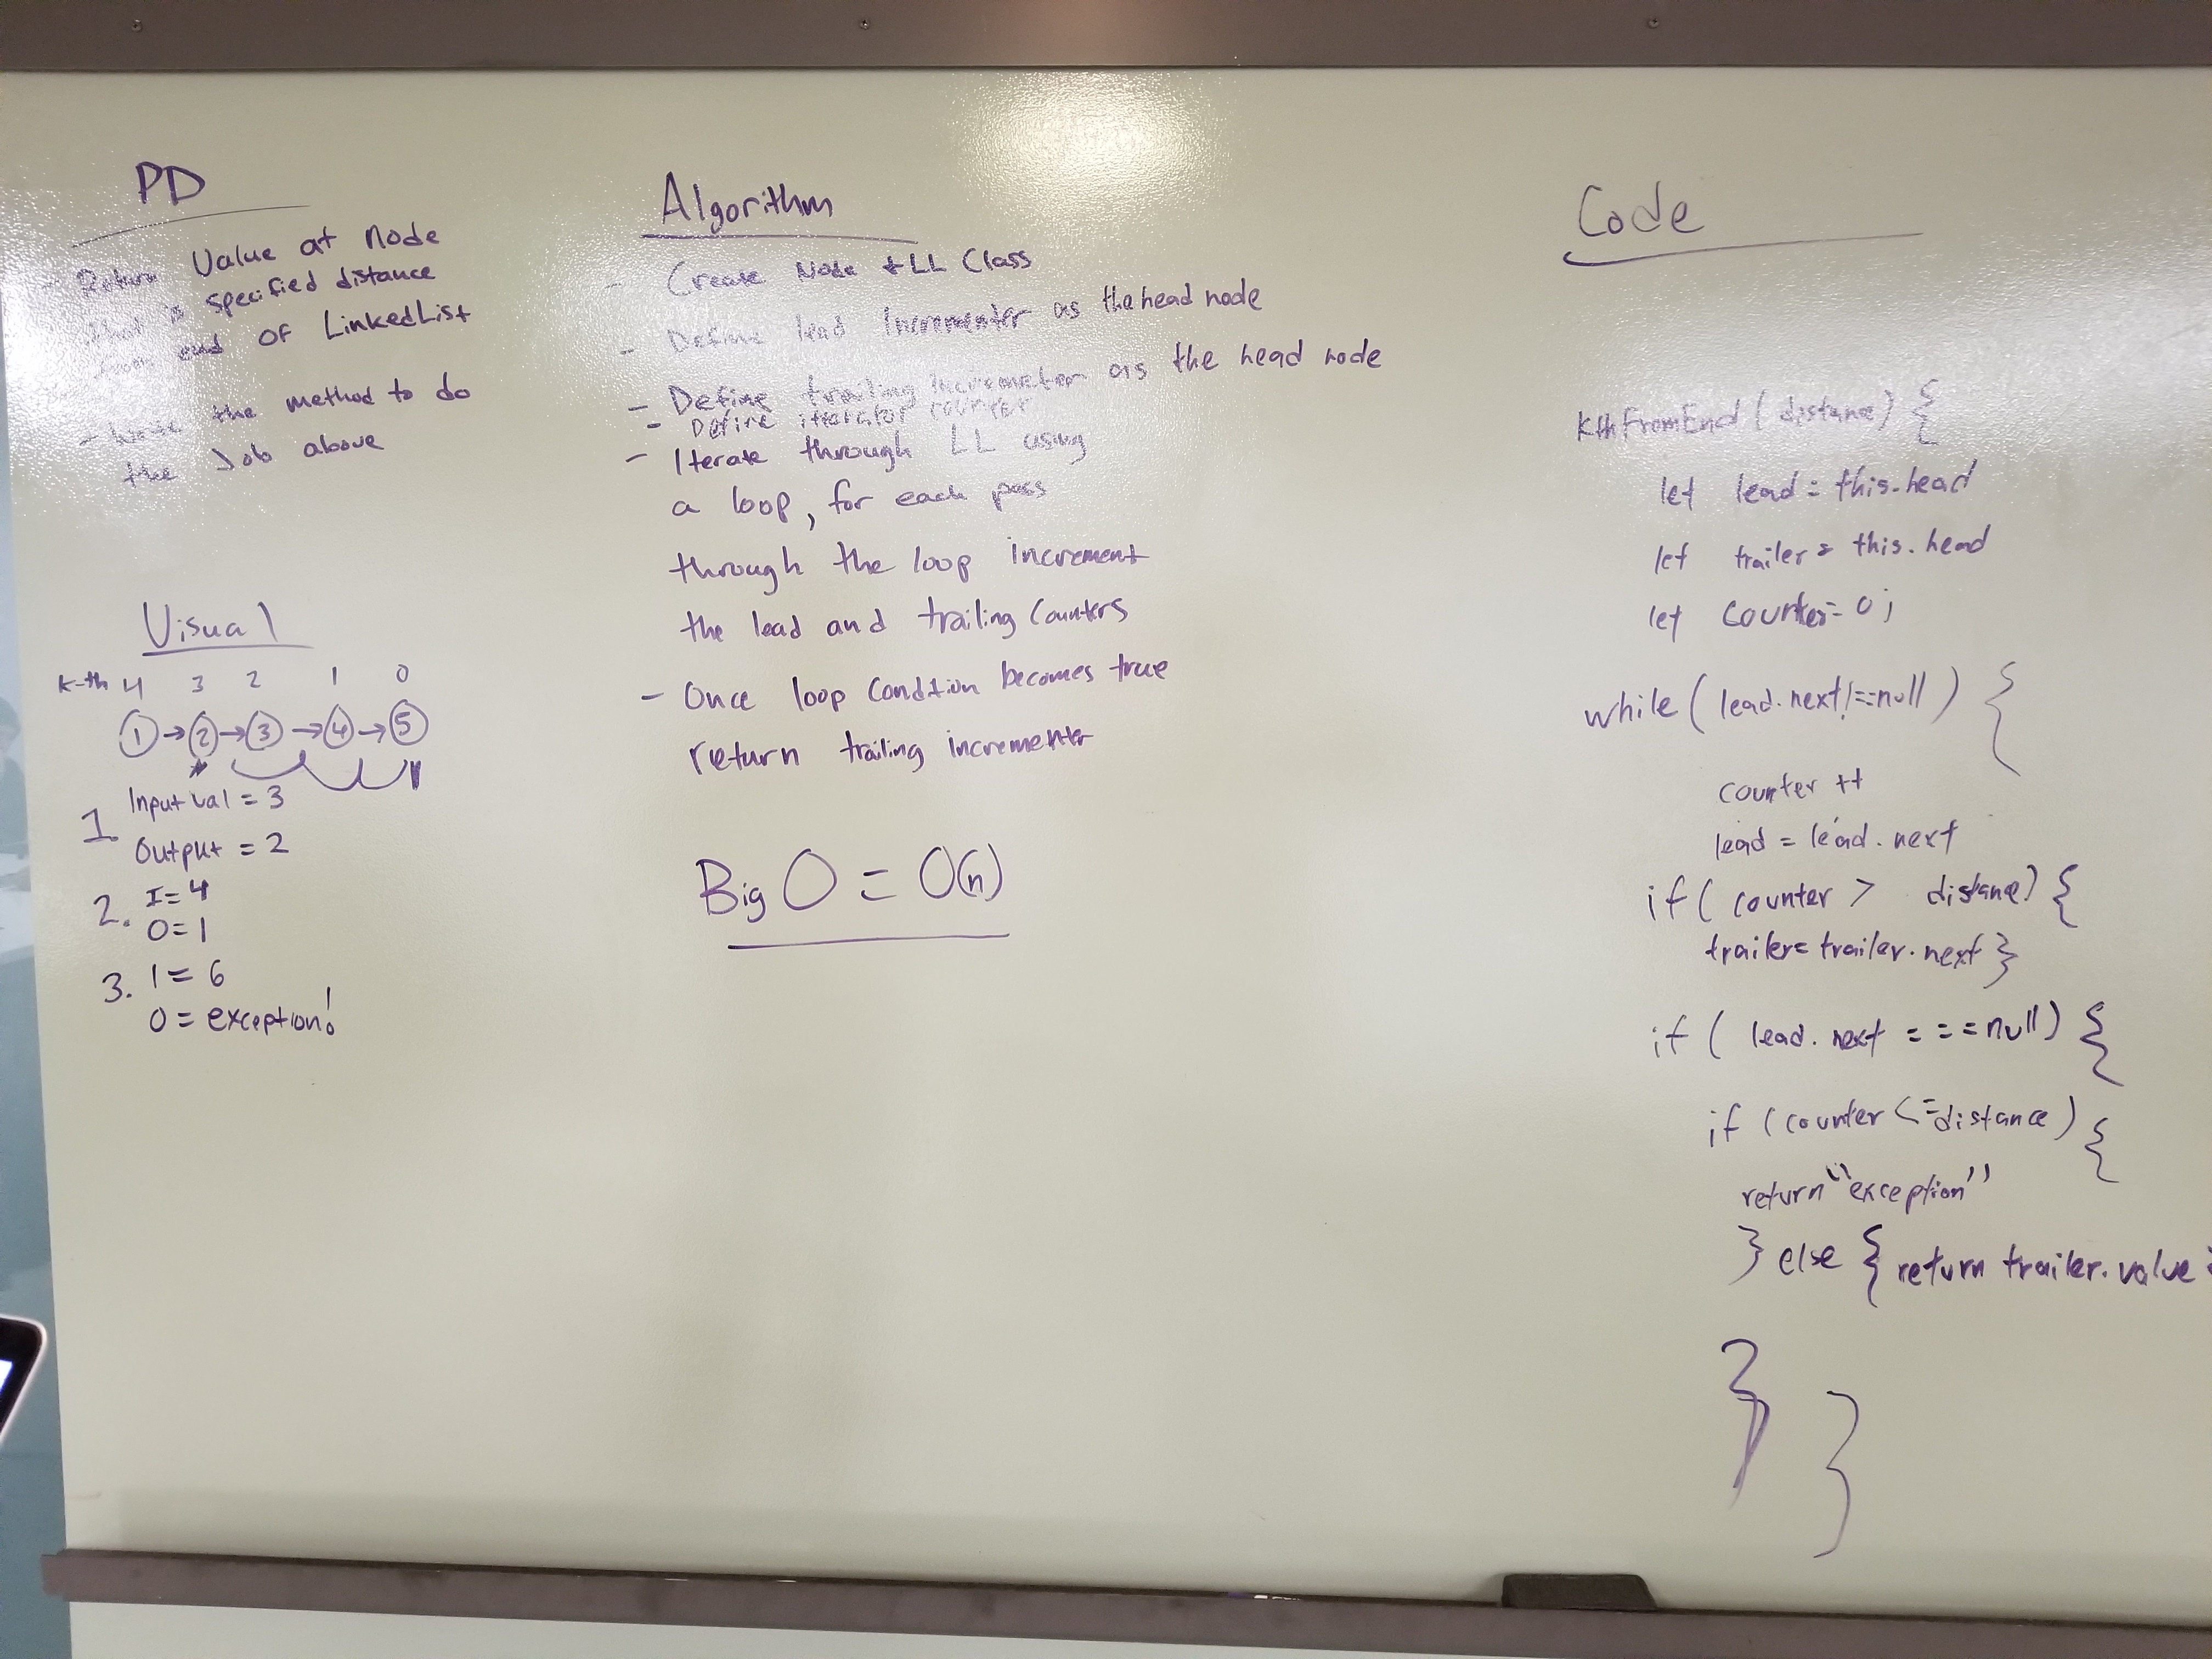 PD
- Return Value at Node
that is specified distance
from end of LinkedList
- Write the method to do
the Job above
Visual
K-th 4 3 2 1 0
1 → 2 → 3 → 4 → 5
1. Input val = 3
Output = 2
2. I = 4
O = 1
3. I = 6
O = exception!
Algorithm
- Create Node + LL Class
- Define lead Incrementer as the head node
- Define trailing Incrementer as the head node
- Define iterator counter
- Iterate through LL using
a loop, for each pass
through the loop increment
the lead and trailing Counters
- Once loop condition becomes true
return trailing incrementer
Big O = O(n)
Code
KthFromEnd (distance) {
let lead = this.head
let trailer = this.head
let counter = 0;
while (lead.next !== null) {
counter ++
lead = lead.next
if (counter > distance) {
trailer = trailer.next }
if (lead.next === null) {
if (counter <= distance) {
return "exception"
} else { return trailer.value
}
}